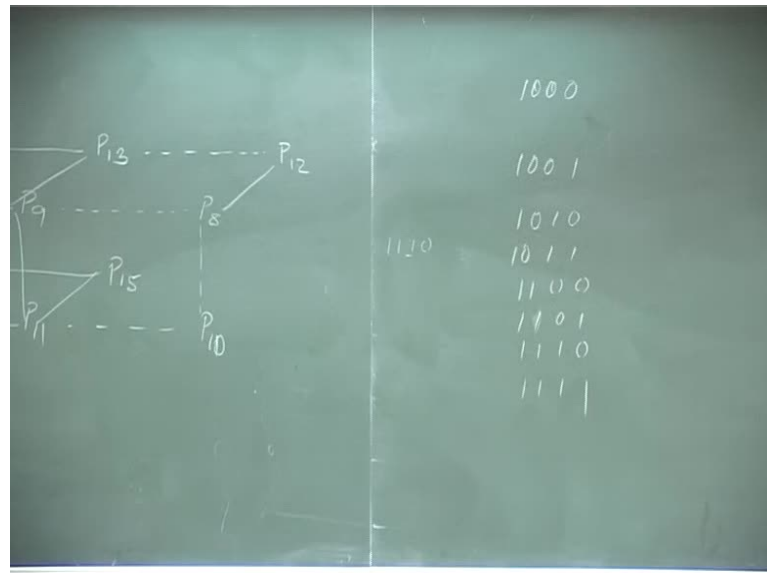 P13 P12
P9 P8
P15
P11 P10
1110
1000
1001
1010
1011
1100
1101
1110
1111